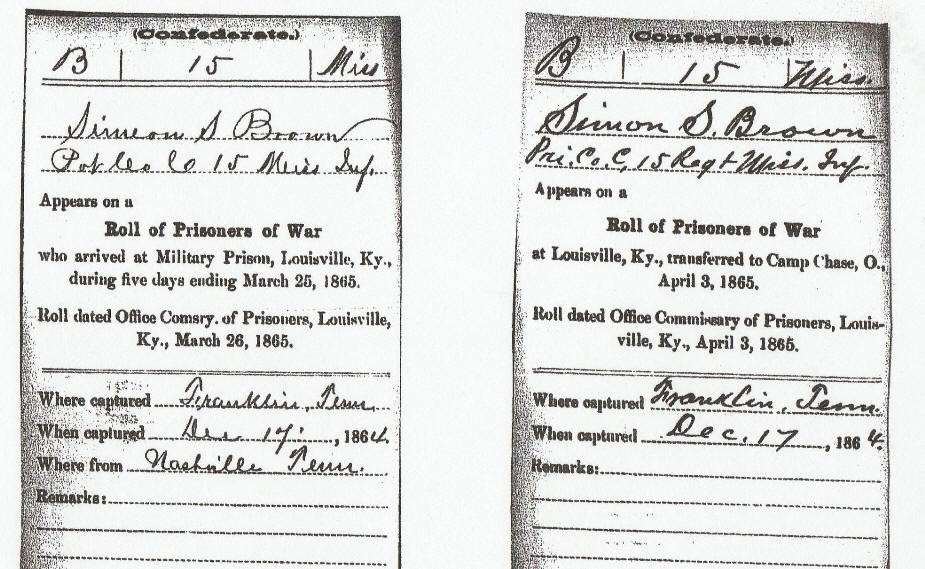 (Confederate.)
B | 15 | Miss
Simeon S Brown
Pvt Co C 15 Miss Inf.
Appears on a
Roll of Prisoners of War
who arrived at Military Prison, Louisville, Ky.,
during five days ending March 25, 1865.
Roll dated Office Comsry. of Prisoners, Louisville,
Ky., March 26, 1865.
Where captured Franklin, Tenn.
When captured Dec 17, 1864.
Where from Nashville Tenn.
Remarks:
(Confederate.)
B | 15 | Miss.
Simon S. Brown
Pri. Co. C, 15 Regt Miss. Inf
Appears on a
Roll of Prisoners of War
at Louisville, Ky., transferred to Camp Chase, O.,
April 3, 1865.
Roll dated Office Commissary of Prisoners, Louis-
ville, Ky., April 3, 1865.
Where captured Franklin, Tenn.
When captured Dec. 17, 1864.
Remarks: